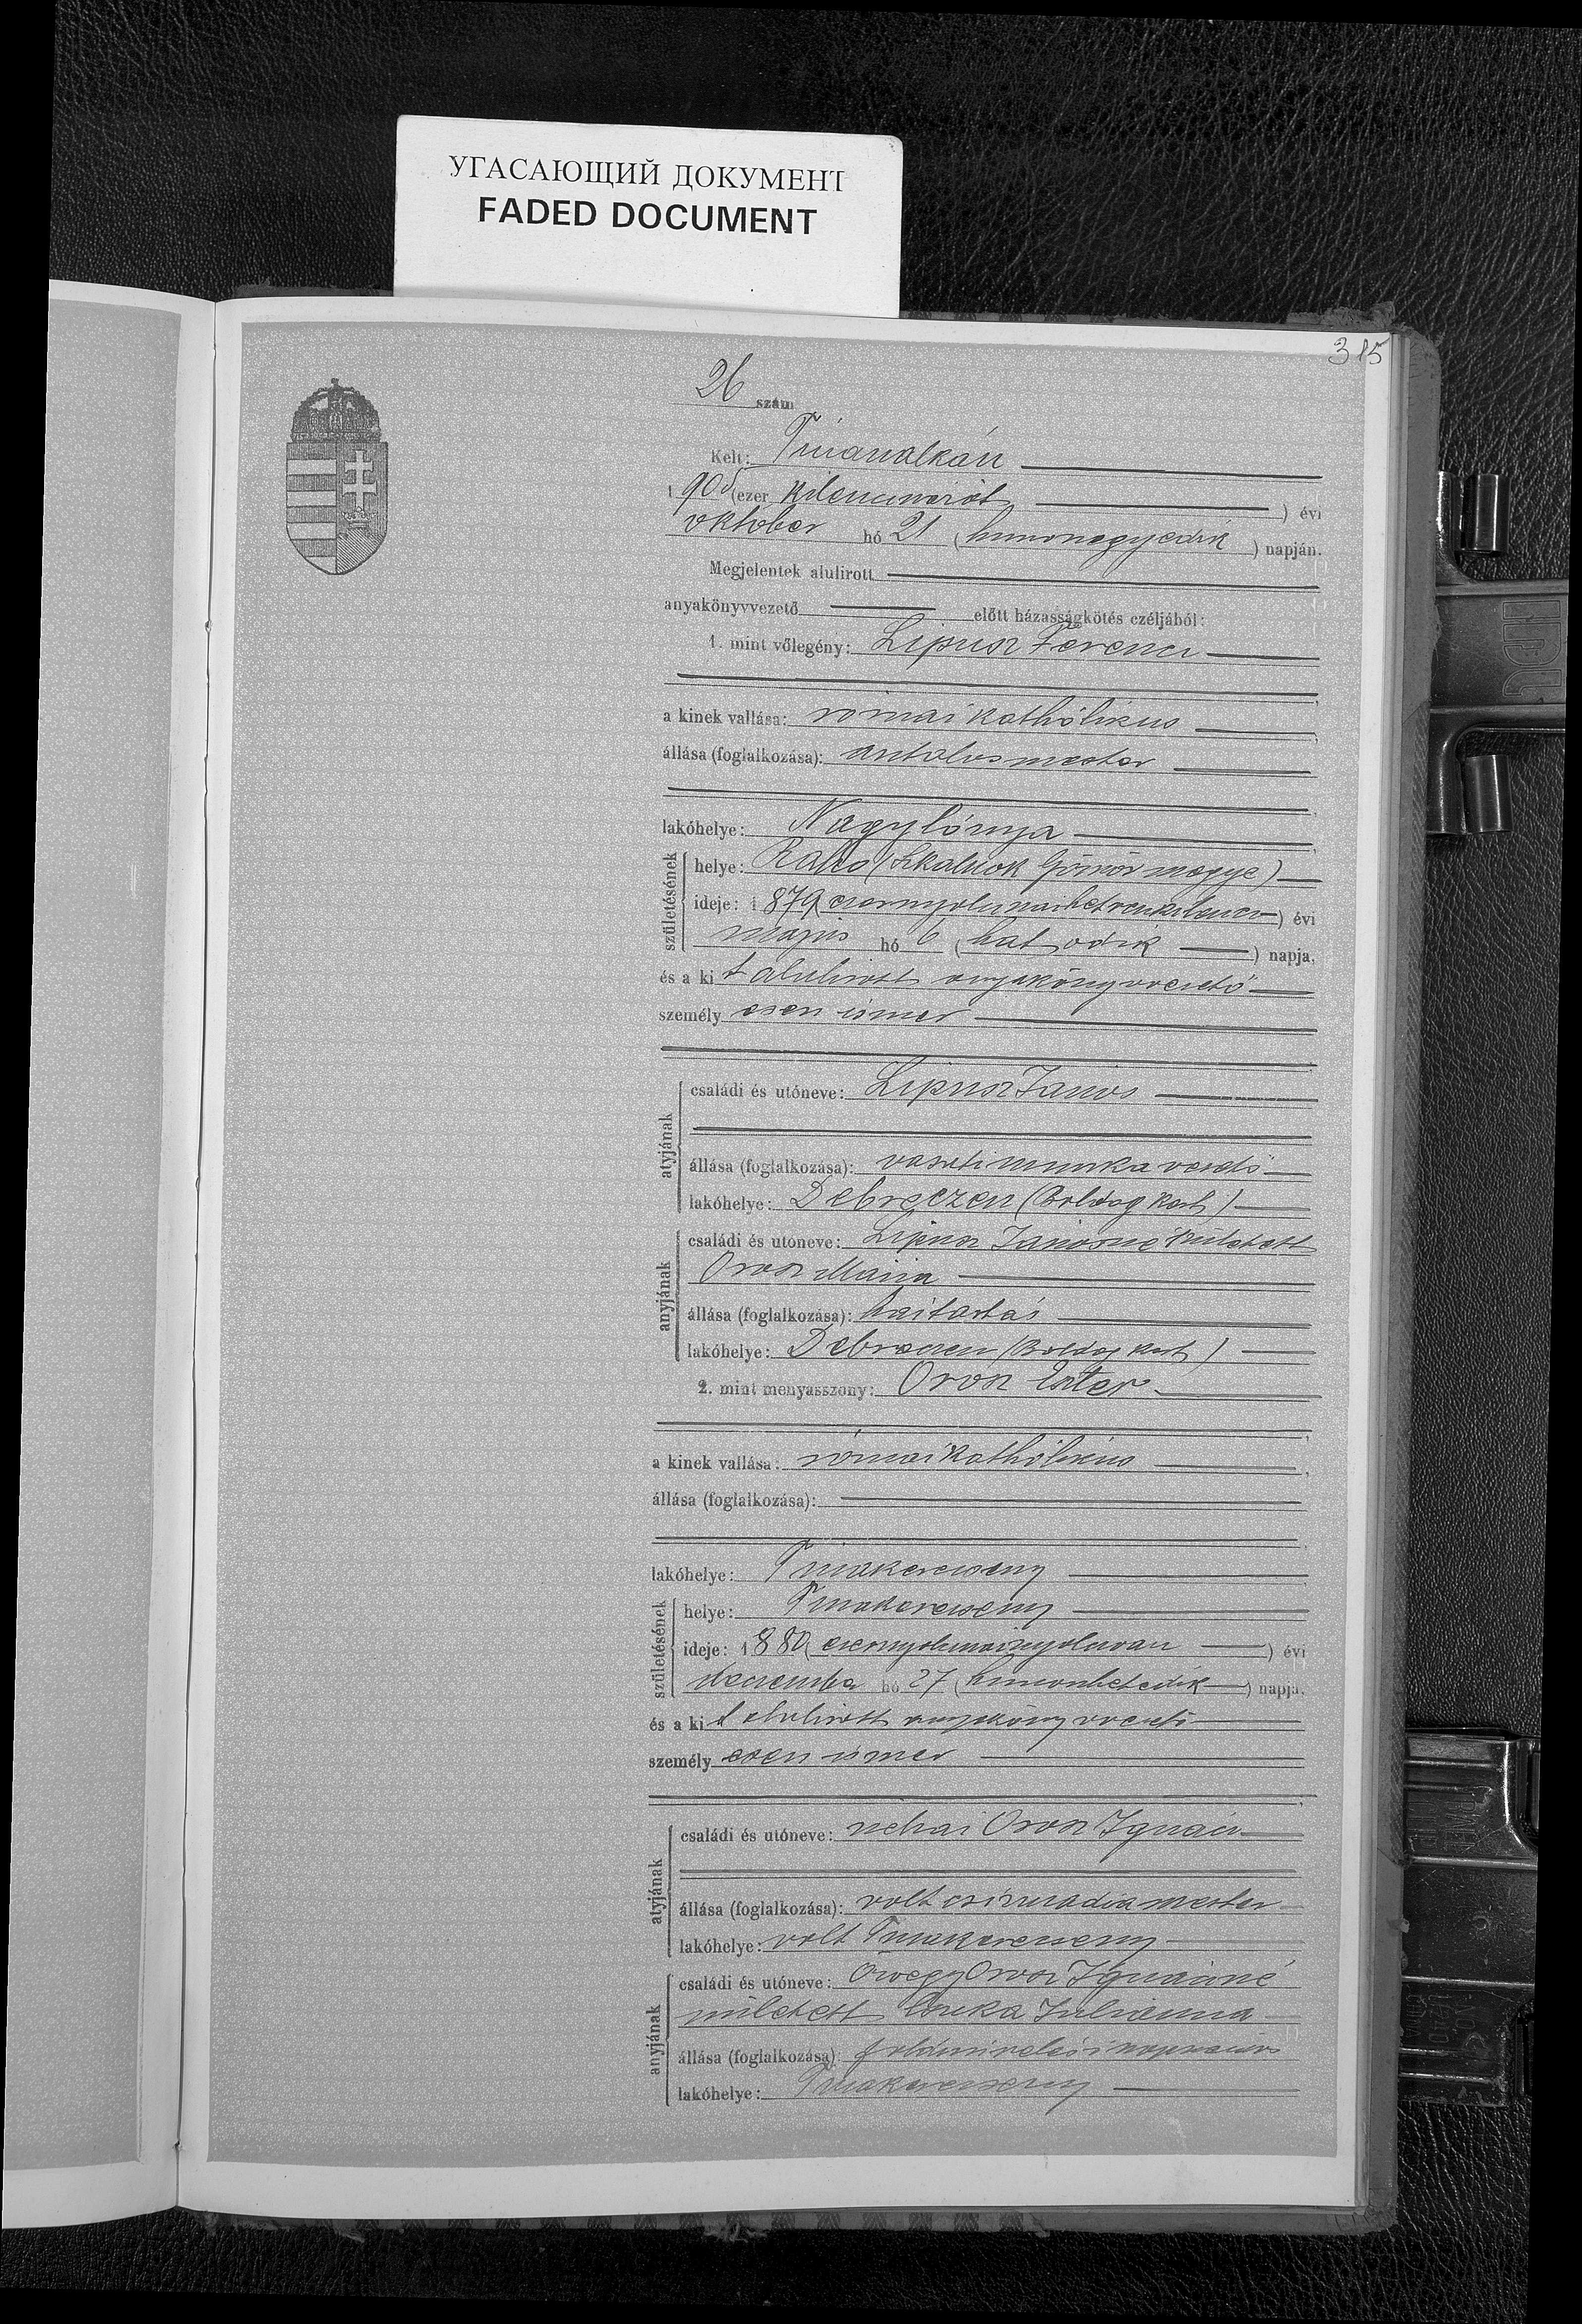 УГАСАЮЩИЙ ДОКУМЕНТ
FADED DOCUMENT
315
26 szám
Kelt: Tiszasalkán
190 (ezer kilenczszáz ) évi
október hó 21 (huszonegyedik ) napján.
Megjelentek alulirott
anyakönyvvezető előtt házasságkötés czéljából:
1. mint vőlegény: Lipusz Ferencz
a kinek vallása: római katholikus
állása (foglalkozása): asztalos mester
lakóhelye: Nagylónya
születésének
helye: Rahó ( Gömör megye)
ideje: 1879 (ezernyolczszázhetvenkilencz) évi
május hó 6 (hatodik ) napja,
és a kit alulirott anyakönyvvezető
személyesen ismer
atyjának
családi és utóneve: Lipusz János
állása (foglalkozása): vasuti munka vezető
lakóhelye: Debreczen (Boldog kert)
anyjának
családi és utóneve: Lipusz Jánosné született
Orosz Mária
állása (foglalkozása): háztartás
lakóhelye: Debreczen (Boldog kert)
2. mint menyasszony: Orosz Eszter
a kinek vallása: római katholikus
állása (foglalkozása):
lakóhelye: Tiszakerecseny
születésének
helye: Tiszakerecseny
ideje: 1880 (ezernyolczszáznyolczvan ) évi
deczember hó 27 (huszonhetedik ) napja,
és a kit alulirott anyakönyvvezető
személyesen ismer
atyjának
családi és utóneve: néhai Orosz Ignácz
állása (foglalkozása): volt csizmadia mester
lakóhelye: volt Tiszakerecseny
anyjának
családi és utóneve: özvegy Orosz Ignáczné
született Julianna
állása (foglalkozása): földmivelési napszámos
lakóhelye: Tiszakerecseny